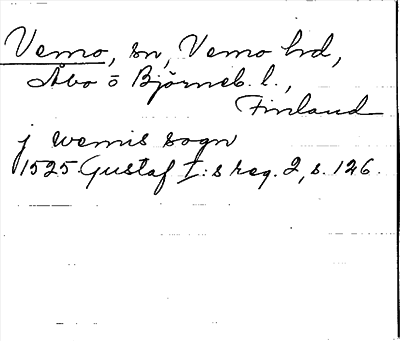 Vemo, sn, Vemo hrd,
Åbo o Björneb. l.,
Finland
j wemis sogn
1525 Gustaf I:s reg. 2, s. 126.